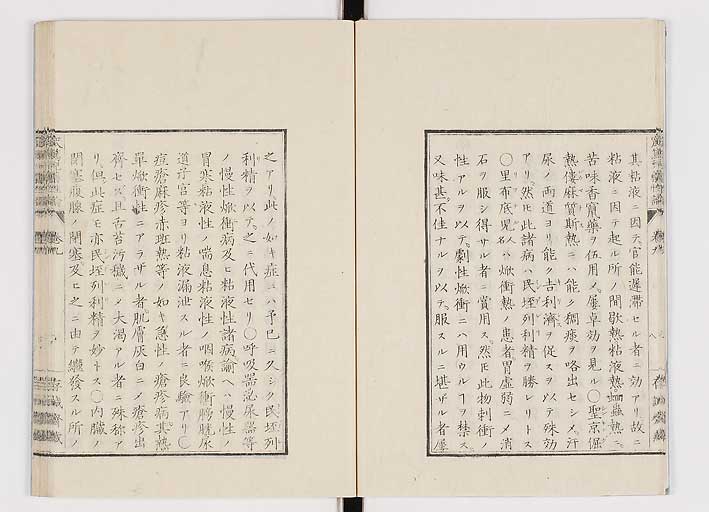 其粘液ニ因テ官能遅滞セル者ニ効アリ故ニ
粘液ニ因テ起ル所ノ間歇熱粘液熱蛔蟲熱ニ
苦味香竄藥ヲ伍用メ屢卓効ヲ見ル〇聖京倔
熱僂麻質斯熱ニハ能ク稠痰ヲ咯出セシメ汗
尿ノ両道ヨリ能ク吉利濟ヲ促スヲ以テ殊効
アリ然𪜈此諸病ハ民垤列利精ヲ勝レリトス
〇里布底児人名ハ焮衝熱ノ患者胃虚弱ニメ消
石ヲ服シ得サル者ニ賞用ス然𪜈此物刺衝ノ
性アルヲ以テ劇性焮衝ニハ用ウルヿヲ禁ス
又味甚不佳ナルヲ以テ服スルニ堪ザル者屢
之アリ此ノ如キ症ニハ予已ニ久シク民垤列
利精ヲ以テ之ニ代用セリ〇呼吸器泌尿器等
ノ慢性焮衝病及ヒ粘液性諸病諭ヘハ慢性ノ
冒寒粘液性ノ喘息粘液性ノ咽喉焮衝膀胱尿
道子宮等ヨリ粘液漏泄スル者ニ良驗アリ〇
痘瘡麻疹赤斑熱等ノ如キ急性ノ瘡疹病其熱
単焮衝性ニアラザル者肌膚灰白ニメ瘡疹出
齊セス且舌苔汚穢ニメ大渇アル者ニ殊称ア
リ但此症モ亦民垤列利精ヲ妙トス〇内臓ノ
閉塞腹腺ノ閉塞及ヒ之ニ由テ繼發スル所ノ